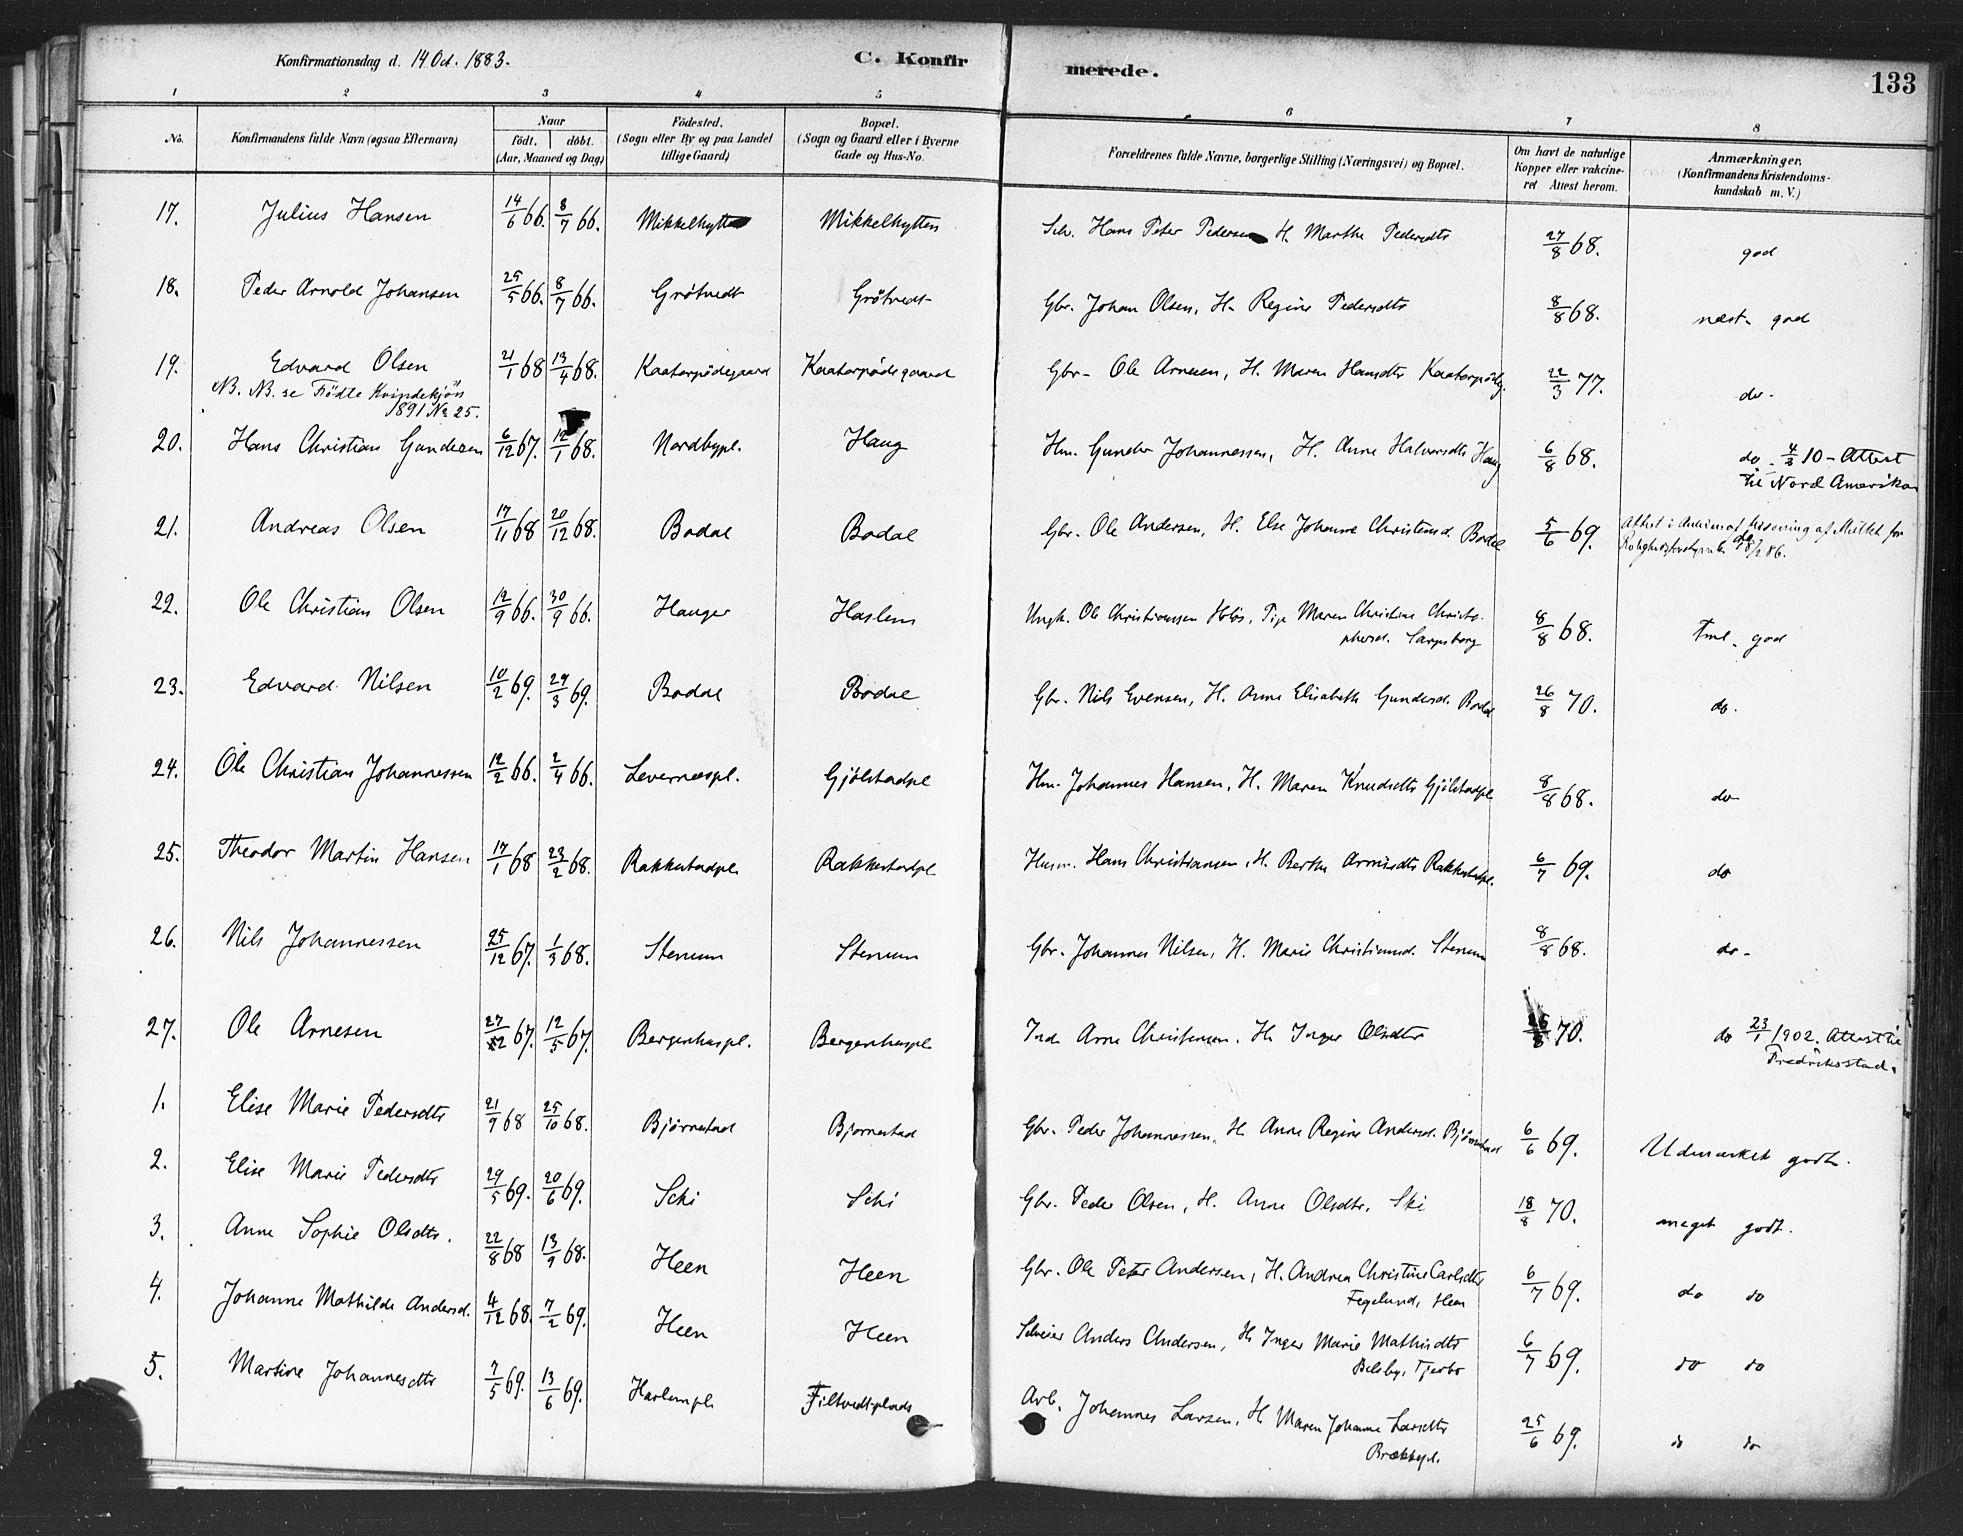 Konfirmationsdag d. 14 Oct. 1883.
C. Konfirmerede.
133
1 2 3 4 5 6 7 8
No. Konfirmandens fulde Navn (ogsaa Efternavn) Naar født. døbt. (Aar, Maaned og Dag) Fødested. (Sogn eller By og paa Landet tillige Gaard) Bopæl. (Sogn og Gaard eller i Byerne Gade og Hus-No. Forældrenes fulde Navne, borgerlige Stilling (Næringsvei) og Bopæl. Om havt de naturlige Kopper eller vakcineret Attest herom. Anmærkninger. (Konfirmandens Kristendomskundskab m. V.)
17. Julius Hansen 14/6 66. 8/7 66. Mikkelhytten Mikkelhytten Selv. Hans Peter Pedersen H. Marthe Pedersdtr 27/8 68. god
18. Peder Arnold Johansen 25/5 66. 8/7 66. Grøtvedt Grøtvedt Gbr. Johan Olsen, H. Regine Pedersdtr 8/8 68. næst. god
19. Edvard Olsen 21/1 68 13/4 68. Kaatorpødegaard Kaatorpødegaard Gbr. Ole Arnesen, H. Maren Hansdtr Kaatorpødg. 22/3 77. do.
N.B. N.B. se Fødte Kvindekjøn
1891 No 25.
20. Hans Christian Gundersen 6/12 67. 12/1 68. Nordbypl. Haug Hm. Gunder Johannessen, H. Anne Halvorsdtr Haug 6/8 68. do. 4/3 10 - Attest
til Nord Amerika
21. Andreas Olsen 17/11 68 20/12 68. Bodal Bodal Gbr. Ole Andersen, H. Else Johanne Christensd. Bodal 5/6 69. Attest i Anl. af af Mulkt for
d. 18/2 86.
22. Ole Christian Olsen 12/9 66. 30/9 66. Hauger Haslem Ungk. Ole Christianssen, Pige Maren Christine Christo-
phersd. Sarpsborg 8/8 68. Tml. god
23. Edvard Nilsen 10/2 69. 29/3 69. Bodal Bodal Gbr. Nils Evensen, H. Anne Elisabeth Gundersd. Bodal 26/8 70. do.
24. Ole Christian Johannessen 12/2 66. 2/4 66. Levernæspl. Gjølstadpl Hm. Johannes Hansen, H. Maren Knudsdtr Gjølstadpl 8/8 68. do
25. Theodor Martin Hansen 17/1 68 23/2 68. Rakkestadpl. Rakkestadpl Husm. Hans Christiansen, H. Berthe Arnisdtr Rakkestadpl. 6/7 69. do
26. Nils Johannessen 25/12 67. 1/3 68. Stenum Stenum Gbr. Johannes Nilsen, H. Marie Christiansd. Stenum 8/8 68. do.
27. Ole Arnesen 27/2 67. 12/5 67. Bergerhuspl. Bergerhuspl. Ind. Arne Christensen, H. Inger Olsdtr 26/8 70. do 23/1 1902. Attest til
Fredriksstad.
1. Elise Marie Pedersdtr 21/9 68 25/10 68. Bjørnstad Bjørnstad Gbr. Peder Johannessen, H. Anne Regine Andersd. Bjørnstad 6/6 69. Udmærket godt.
2. Elise Marie Pedersdtr 29/5 69. 20/6 69. Schi Schi Gbr. Peder Olsen, H. Anne Olsdtr. Ski 18/8 70. meget godt.
3. Anne Sophie Olsdtr. 22/8 68 13/9 68. Heen Heen Gbr. Ole Peter Andersen, H. Andrea Christine Carlsdtr
Fegelund, Heen 6/7 69. do do
4. Johanne Mathilde Andersd. 4/12 68. 7/2 69. Heen Heen Selveier Anders Andersen, H. Inger Marie Mathisdtr
Belsby, Tjerbo 6/7 69. do do
5. Martine Johannesdtr 7/5 69. 13/6 69. Haslempl. Filtvedtplads Arb. Johannes Larsen, H. Maren Johanne Larsdtr
Brækkepl. 25/6 69. do do